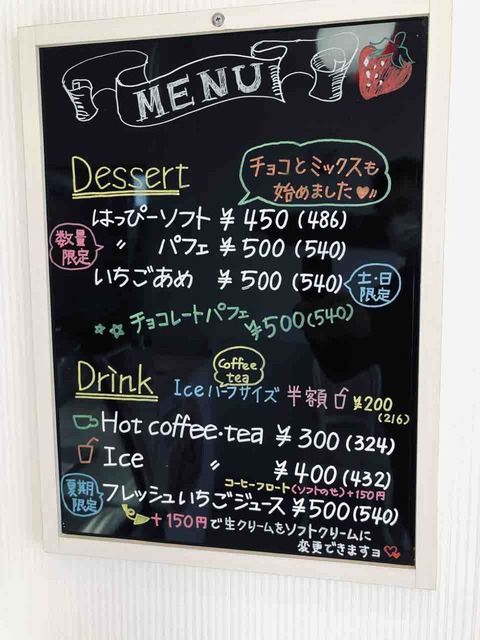 MENU
Dessert
チョコとミックスも
始めました♥〃
はっぴーソフト ¥450(486)
数量
限定
〃 パフェ ¥500(540)
いちごあめ ¥500(540)
土・日
限定
☆☆チョコレートパフェ ¥500(540)
Coffee
tea
Drink
Iceハーフサイズ 半額 ¥200
(216)
Hot coffee・tea ¥300(324)
Ice 〃 ¥400(432)
コーヒーフロート(ソフトのせ)+150円
夏期
限定
フレッシュいちごジュース ¥500(540)
+150円で生クリームをソフトクリームに
変更できますョ♥